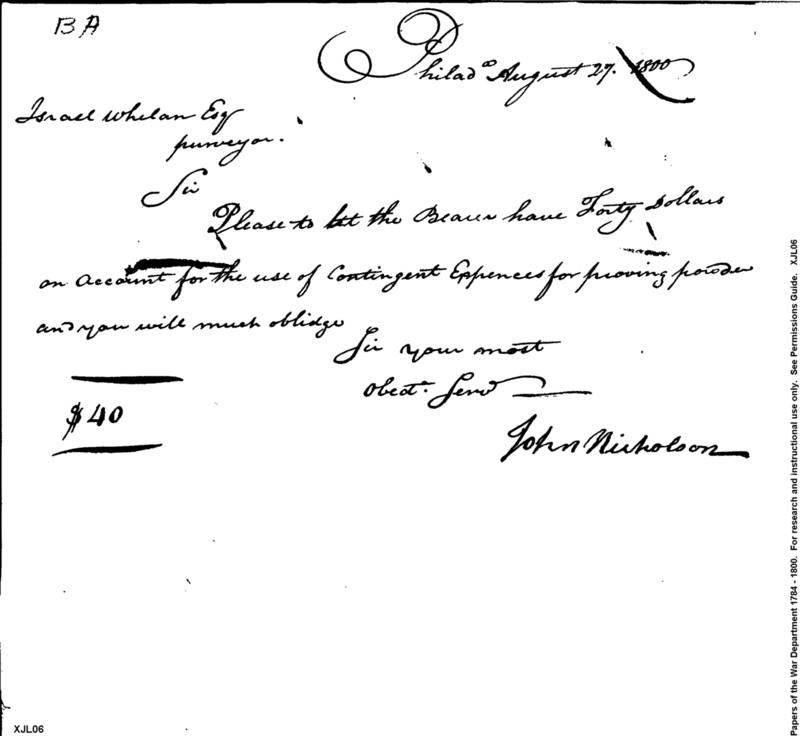 BA
Philad.ª August 27. 1800
Israel Whelan Esq
purveyor.
Sir
Please to let the Bearer have Forty Dollars
on Account for the use of Contingent Expences for proving powder
and you will much oblidge
Sir your most
Obedt. Servt
$40
John Nicholson
XJL06
Papers of the War Department 1784 - 1800. For research and instructional use only. See Permissions Guide. XJL06